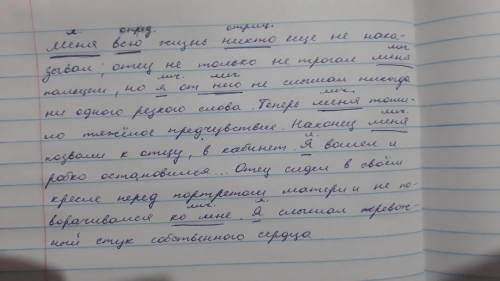 я опред. отриц.
Меня всю жизнь никто еще не нака-
зывал; отец не только не трогал меня
лич.
пальцем, но я от него не слышал никогда
лич. лич.
ни одного резкого слова. Теперь меня томи-
лич.
ло тяжёлое предчувствие. Наконец меня
лич.
позвали к отцу, в кабинет. Я вошел и
л.
робко остановился... Отец сидел в своём
кресле перед портретом матери и не по-
ворачивался ко мне. Я слышал тревож-
лич. л.
ный стук собственного сердца